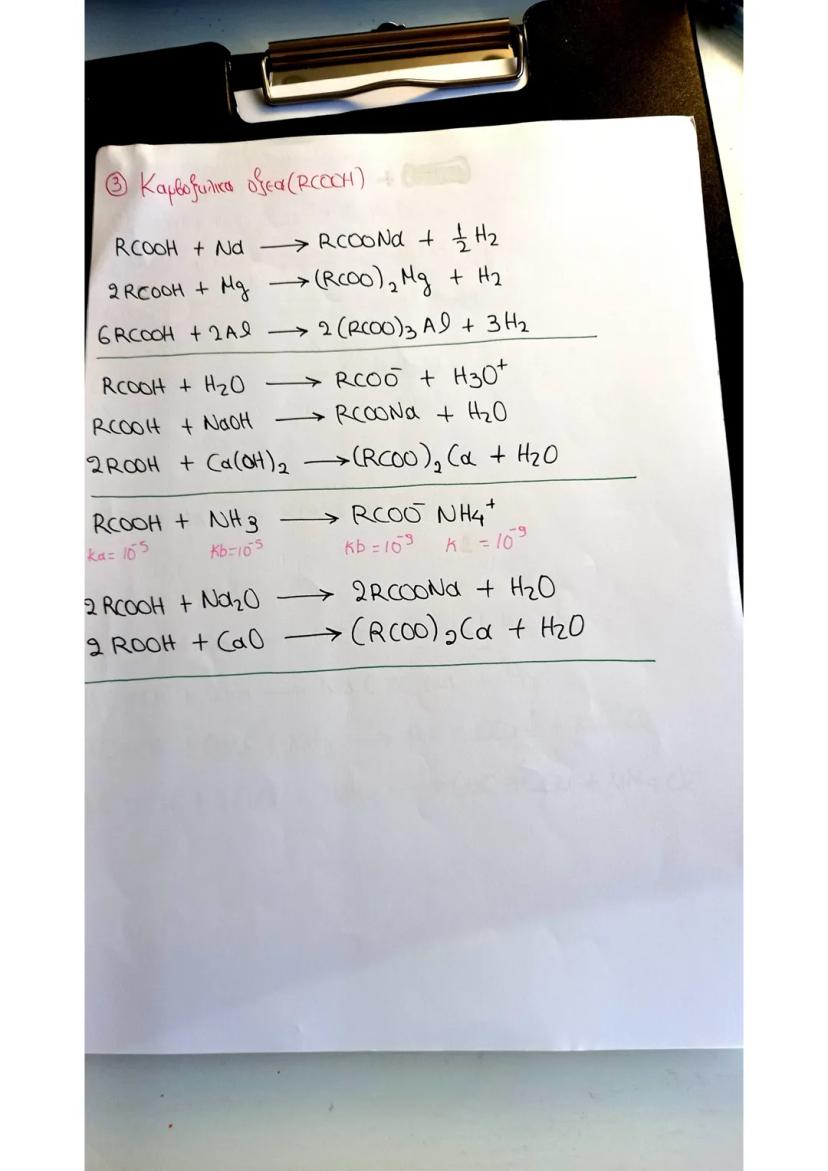 ③ Καρβοξυλικα οξεα (RCOOH) +
RCOOH + Na ⟶ RCOONa + ½ H2
2RCOOH + Mg ⟶ (RCOO)2Mg + H2
6RCOOH + 2Al ⟶ 2(RCOO)3Al + 3H2
RCOOH + H2O ⟶ RCOO⁻ + H3O⁺
RCOOH + NaOH ⟶ RCOONa + H2O
2ROOH + Ca(OH)2 ⟶ (RCOO)2Ca + H2O
RCOOH + NH3 ⟶ RCOO⁻ NH4⁺
ka = 10⁻⁵ Kb=10⁻⁵ Kb = 10⁻⁹ K = 10⁻⁹
2RCOOH + Na2O ⟶ 2RCOONa + H2O
2ROOH + CaO ⟶ (RCOO)2Ca + H2O